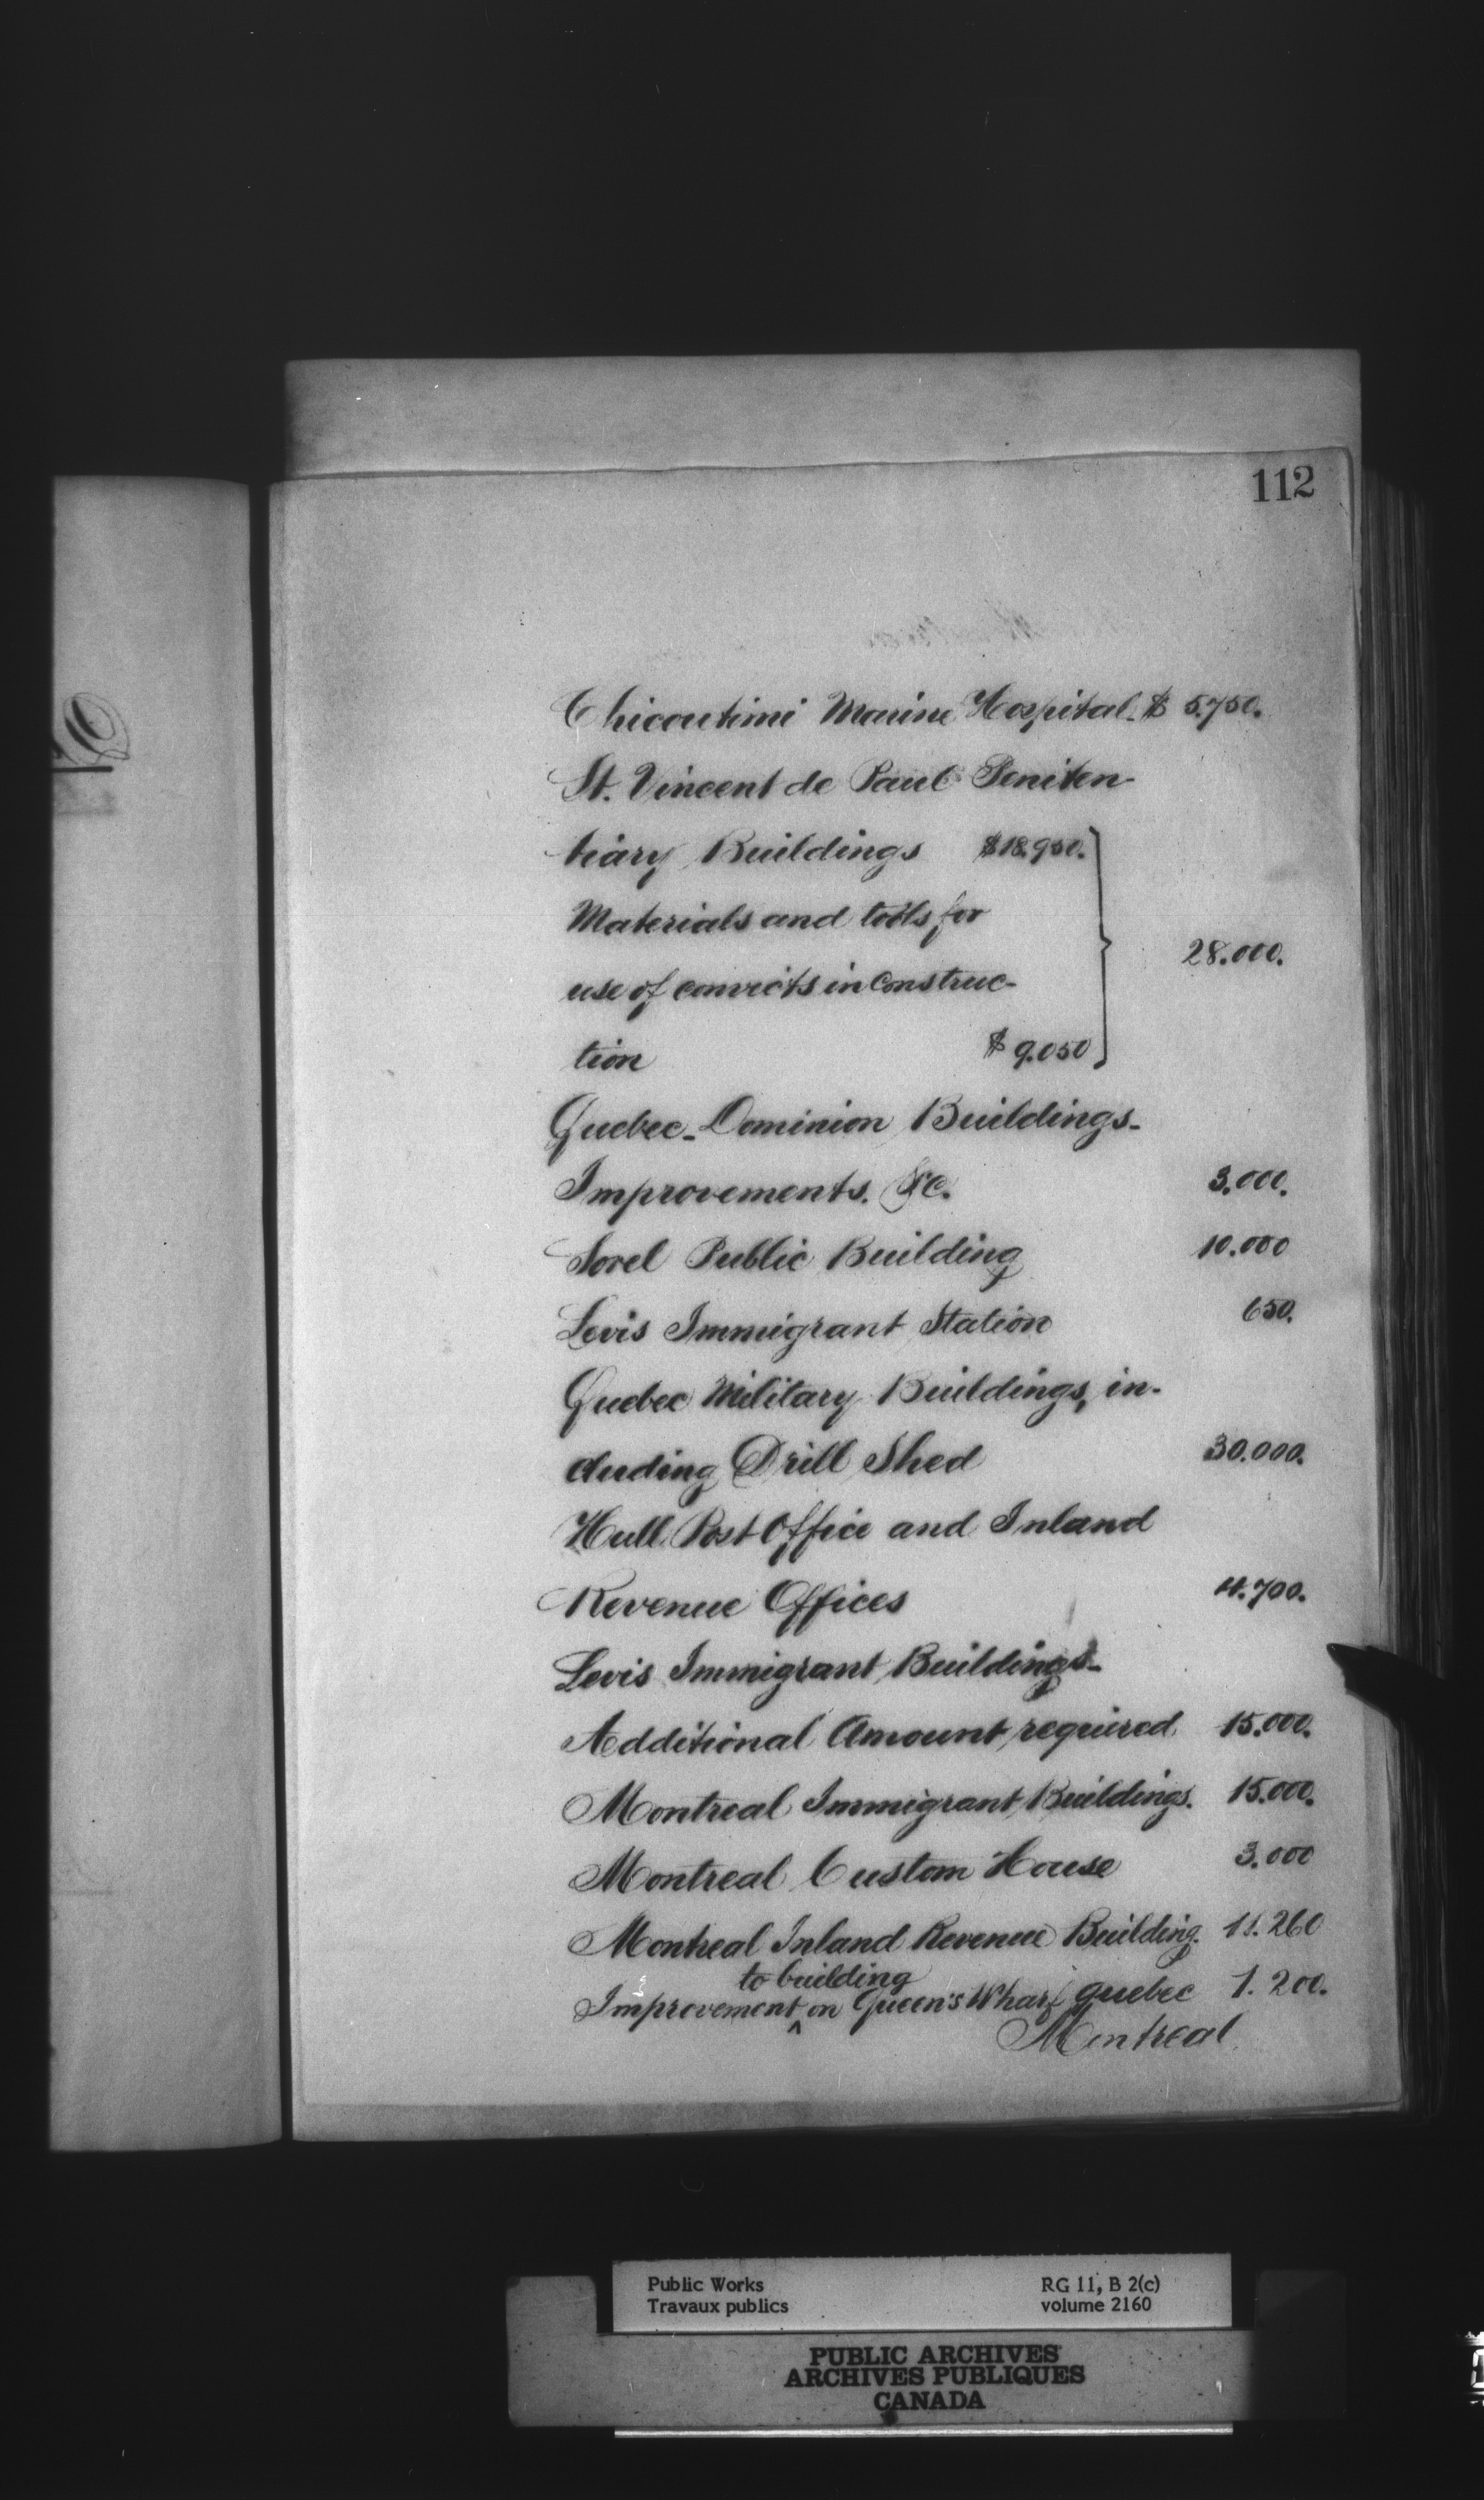 112
Chicoutimi Marine Hospital. $ 5.750.
St. Vincent de Paul Peniten-
tiary Buildings $18.950.
Materials and tools for
28.000.
use of convicts in Construc-
tion $ 9.050
Quebec - Dominion Buildings -
Improvements. &c. 3.000.
Sorel Public Building 10.000
Levis Immigrant Station 650.
Quebec Military Buildings, in-
cluding Drill Shed 30.000.
Hull Post Office and Inland
Revenue Offices 4.700.
Levis Immigrant Buildings -
Additional Amount required 15.000.
Montreal Immigrant Buildings. 15.000.
Montreal Custom House 3.000
Montreal Inland Revenue Building. 11.260
to building
Improvement ^ on Queen's Wharf Quebec 1.200.
Montreal
Public Works RG 11, B 2(c)
Travaux publics volume 2160
PUBLIC ARCHIVES
ARCHIVES PUBLIQUES
CANADA